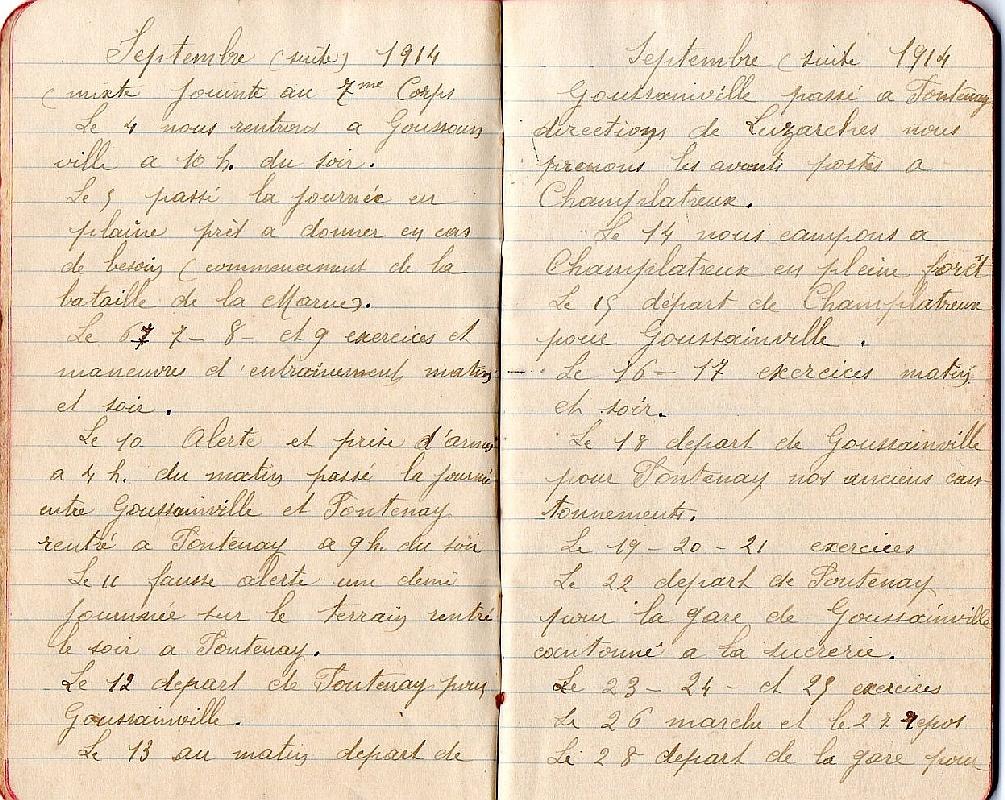 Septembre (suite) 1914
(mixte jointe au 7me Corps
Le 4 nous rentrons a Goussain
ville a 10 h. du soir.
Le 5 passé la journée en
plaine prêt a donner en cas
de besoin (commencement de la
bataille de la Marne).
Le 6 7 - 8 - et 9 exercices et
maneuvre d'entrainement matin
et soir.
Le 10 Alerte et prise d'armes
a 4 h. du matin passé la journé
entre Goussainville et Fontenay
rentré a Fontenay a 9 h. du soir
Le 11 fausse alerte une demi
journnée sur le terrain rentré
le soir a Fontenay.
Le 12 depart de Fontenay pour
Goussainville.
Le 13 au matin depart de
Septembre (suite 1914
Goussainville passé a Fontenay
direction de Luzarches nous
prenons les avants postes a
Champlatreux.
Le 14 nous campons a
Champlatreux en pleine forêt
Le 15 départ de Champlatreux
pour Goussainville.
Le 16 - 17 exercices matin
et soir.
Le 18 depart de Goussainville
pour Fontenay nos anciens can
tonnements.
Le 19 - 20 - 21 exercices
Le 22 depart de Fontenay
pour la gare de Goussainville
cantonné a la sucrerie.
Le 23 - 24 - et 25 exercices
Le 26 marche et le 27 repos
Le 28 départ de la gare pour